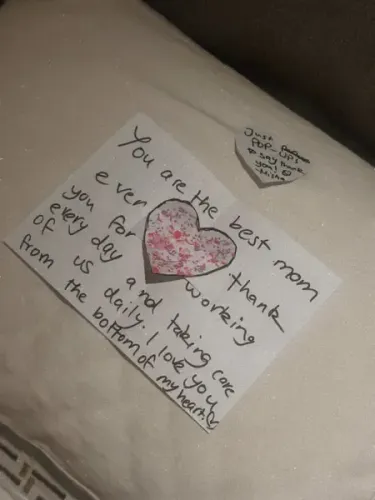 You are the best mom
ever thank
you for working
every day and taking care
of us daily. I love you
from the bottom of my heart!♡
Just
POP-UP!
to say thank
you! ☺